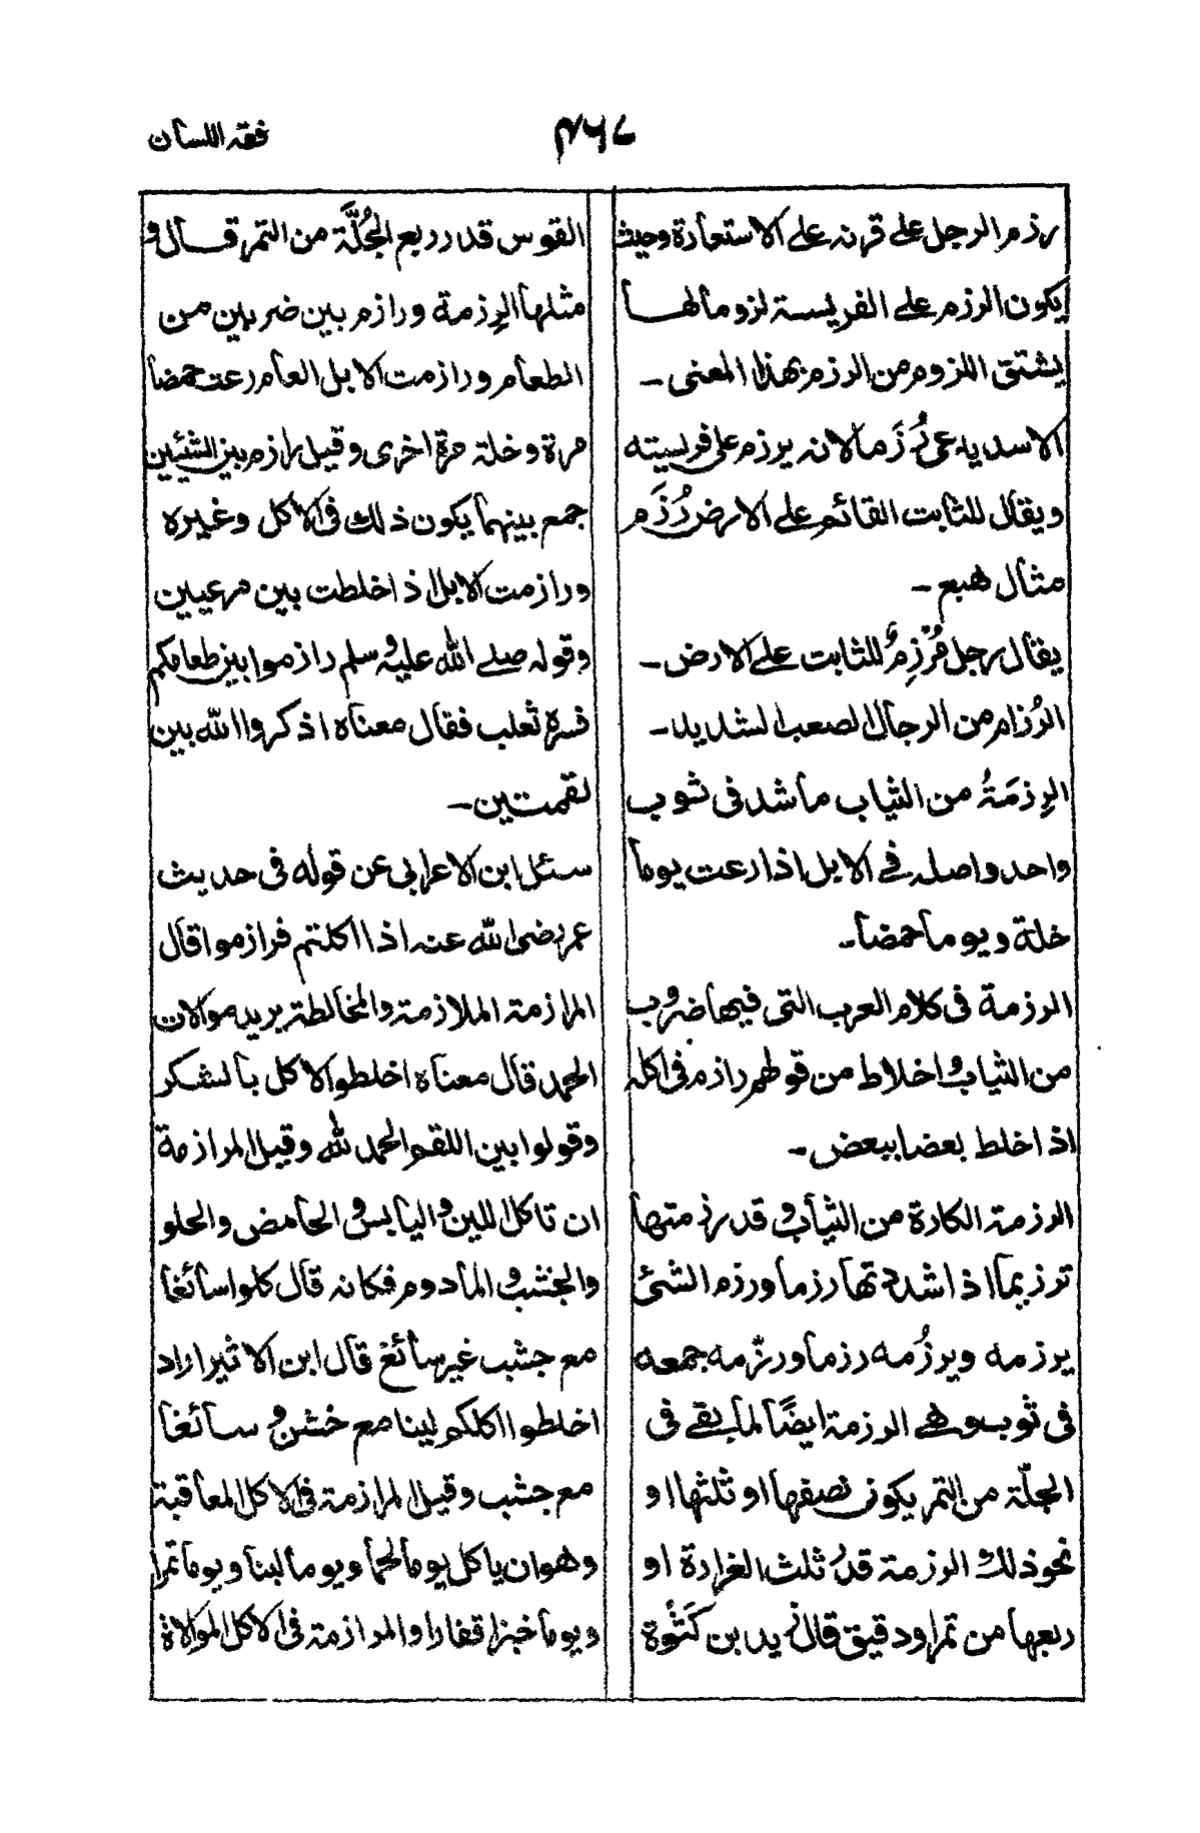 فقہ اللسان
۴۶۷
رزم الرجل علی قرنہ علی الاستعارة وحیث
یکون الرزم علی الفریسۃ لزوما لھا
یشتق اللزوم من الرزم بھذا المعنی ۔
الاسد یدعی رُزَما لانہ یرزم علی فریسیتہ
ویقال للثابت القائم علی الارض رُزَم
مثال ھبع ۔
یقال رجل مُرْزِمٌ للثابت علی الارض ۔
الرُزام من الرجال الصعب الشدید ۔
الرِزمَۃُ من الثیاب ما شد فی ثوب
واحد واصلہ فے الابل اذا رعت یوما
خلة ویوما حمضا ۔
الرزمة فی کلام العرب التی فیھا ضروب
من الثیاب واخلاط من قولھم رازم فی اکلہ
اذا خلط بعضا ببعض ۔
الرزمۃ الکارة من الثیاب و قد رزمتھا
ترزیما اذا شددتھا رزما ورزم الشئ
یرزمہ ویرزُمہ رزما ورزّمہ جمعہ
فی ثوب وھے الرزمة ایضًا لما بقے فی
الجلّۃ من التمر یکون نصفھا او ثلثھا او
نحو ذلک الرزمۃ قدر ثلث الغرارة او
ربعھا من تمر او دقیق قال زید بن کَثْوة
القوس قدر ربع الجُلَّة من التمر قال و
مثلھا الرِزمة ورازم بین ضربین من
الطعام ورازمت الابل العام رعت حمضا
مرة وخلة مرة اخری وقیل رازم بین الشیئین
جمع بینھما یکون ذلک فی الاکل وغیرہ
ورازمت الابل اذ اخلطت بین مرعیین
وقولہ صلے اللہ علیہ وسلم رازموا بین طعامکم
فسرہ ثعلب فقال معناہ اذکروا اللہ بین
لقمتین ۔
سئل ابن الاعرابی عن قولہ فی حدیث
عمر رضی اللہ عنہ اذا اکلتم فرازموا قال
المرازمة الملازمة والمخالطة یرید موالات
الحمد قال معناہ اخلطوا الاکل بالشکر
وقولوا بین اللقم الحمد للہ وقیل المرازمة
ان تاکل اللین والیابس والحامض والحلو
والجشب والمادوم فکانہ قال کلوا سائغا
مع جشب غیر سائغ قال ابن الاثیر اراد
اخلطوا اکلکم لینا مع خشن و سائغا
مع جشب وقیل المرازمة فی الاکل المعاقبة
وھو ان یاکل یوما لحما ویوما لبنا ویوما تمرا
ویوما خبزا قفارا والمرازمة فی الاکل الموالاة